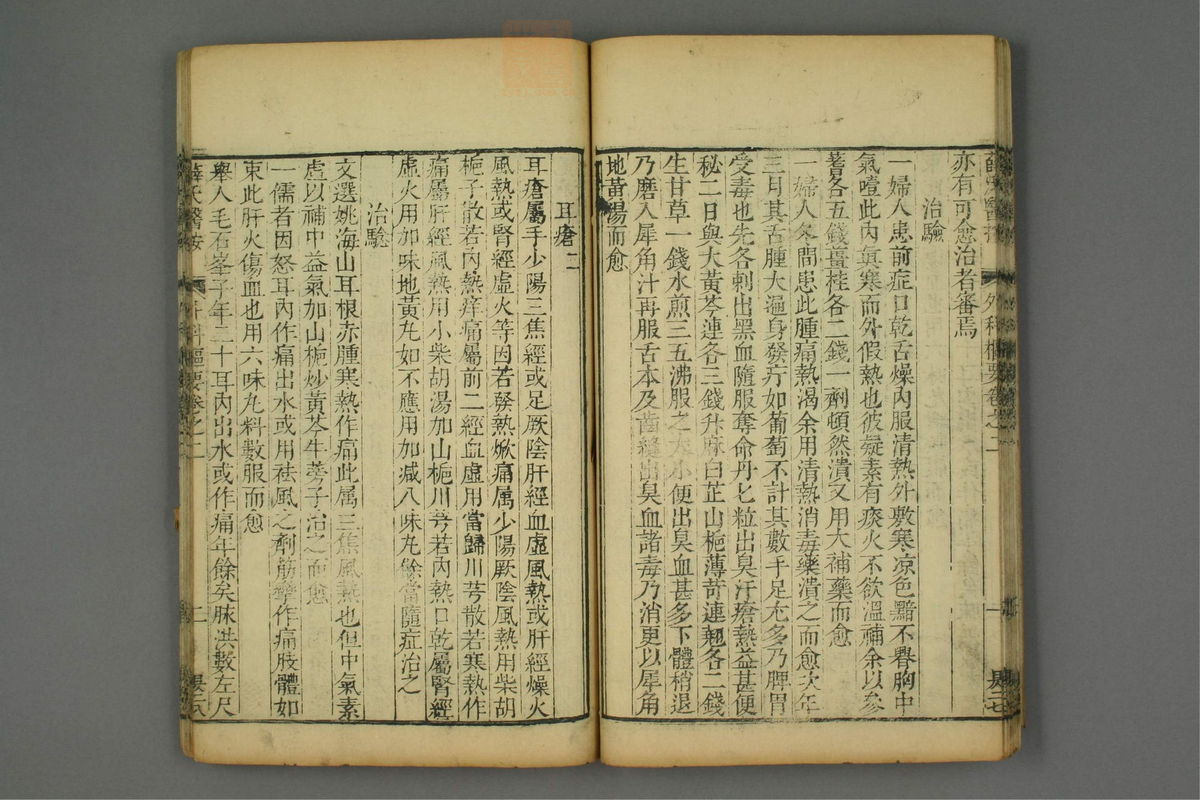 亦有可愈治者審焉
治驗
一婦人患前症口乾舌燥內服清熱外敷寒凉色黯不舉胸中
氣噎此內眞寒而外假熱也彼疑素有痰火不欲溫補余以參
蓍各五錢薑桂各二錢一劑頓然潰又用大補藥而愈
一婦人冬間患此腫痛熱渴余用清熱消毒藥潰之而愈次年
三月其舌腫大遍身發疔如葡萄不計其數手足尤多乃脾胃
受毒也先各刺出黑血隨服奪命丹七粒出臭汗瘡熱益甚便
秘二日與大黃芩連各三錢升麻白芷山梔薄荷連翹各二錢
生甘草一錢水煎三五沸服之大小便出臭血甚多下體稍退
乃磨入犀角汁再服舌本及齒縫出臭血諸毒乃消更以犀角
地黃湯而愈
耳瘡二
耳瘡屬手少陽三焦經或足厥陰肝經血虛風熱或肝經燥火
風熱或腎經虛火等因若發熱焮痛属少陽厥陰風熱用柴胡
梔子散若內熱痒痛屬前二經血虛用當歸川芎散若寒熱作
痛屬肝經風熱用小柴胡湯加山梔川芎若內熱口乾屬腎經
虛火用加味地黃丸如不應用加减八味丸餘當隨症治之
治驗
文選姚海山耳根赤腫寒熱作痛此属三焦風熱也但中氣素
虛以補中益氣加山梔炒黃芩牛蒡子治之而愈
一儒者因怒耳內作痛出水或用祛風之劑筋攣作痛肢體如
束此肝火傷血也用六味丸料數服而愈
舉人毛石峯子年二十耳內出水或作痛年餘矣脉洪數左尺
薛氏醫按 外科樞要卷之二 二